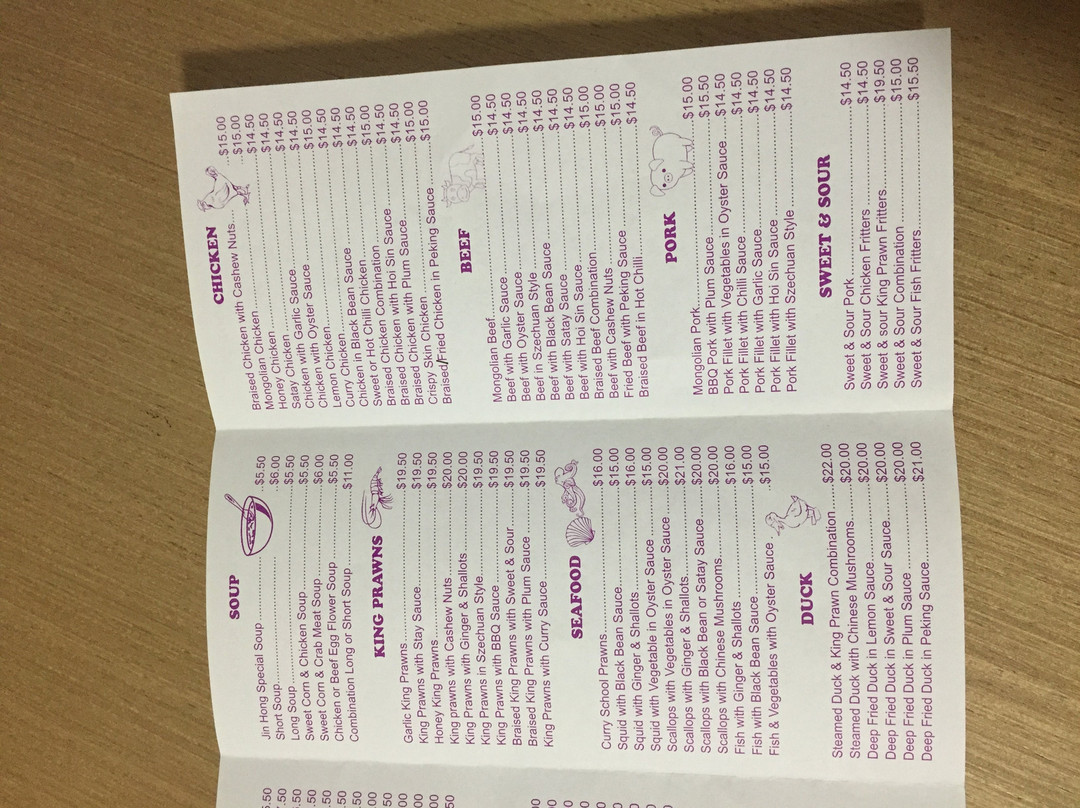 SOUP
Jin Hong Special Soup $5.50
Short Soup $6.00
Long Soup $5.50
Sweet Corn & Chicken Soup $5.50
Sweet Corn & Crab Meat Soup $6.00
Chicken or Beef Egg Flower Soup $5.50
Combination Long or Short Soup $11.00
KING PRAWNS
Garlic King Prawns $19.50
King Prawns with Stay Sauce $19.50
Honey King Prawns $19.50
King prawns with Cashew Nuts $20.00
King Prawns with Ginger & Shallots $20.00
King Prawns in Szechuan Style $19.50
King Prawns with BBQ Sauce $19.50
Braised King Prawns with Sweet & Sour $19.50
Braised King Prawns with Plum Sauce $19.50
King Prawns with Curry Sauce $19.50
SEAFOOD
Curry School Prawns $16.00
Squid with Black Bean Sauce $15.00
Squid with Ginger & Shallots $16.00
Squid with Vegetable in Oyster Sauce $15.00
Scallops with Vegetables in Oyster Sauce $20.00
Scallops with Ginger & Shallots $21.00
Scallops with Black Bean or Satay Sauce $20.00
Scallops with Chinese Mushrooms $20.00
Fish with Ginger & Shallots $16.00
Fish with Black Bean Sauce $15.00
Fish & Vegetables with Oyster Sauce $15.00
DUCK
Steamed Duck & King Prawn Combination $22.00
Steamed Duck with Chinese Mushrooms $20.00
Deep Fried Duck in Lemon Sauce $20.00
Deep Fried Duck in Sweet & Sour Sauce $20.00
Deep Fried Duck in Plum Sauce $20.00
Deep Fried Duck in Peking Sauce $21.00
CHICKEN
Braised Chicken with Cashew Nuts $15.00
Mongolian Chicken $15.00
Honey Chicken $14.50
Satay Chicken $14.50
Chicken with Garlic Sauce $14.50
Chicken with Oyster Sauce $14.50
Lemon Chicken $15.00
Curry Chicken $14.50
Chicken in Black Bean Sauce $14.50
Sweet or Hot Chilli Chicken $14.50
Braised Chicken Combination $15.00
Braised Chicken with Hoi Sin Sauce $14.50
Braised Chicken with Plum Sauce $14.50
Crispy Skin Chicken $15.00
Braised/Fried Chicken in Peking Sauce $15.00
BEEF
Mongolian Beef $15.00
Beef with Garlic Sauce $14.50
Beef with Oyster Sauce $14.50
Beef in Szechuan Style $14.50
Beef with Black Bean Sauce $14.50
Beef with Satay Sauce $14.50
Beef with Hoi Sin Sauce $14.50
Braised Beef Combination $15.00
Beef with Cashew Nuts $15.00
Fried Beef with Peking Sauce $15.00
Braised Beef in Hot Chilli $14.50
PORK
Mongolian Pork $15.00
BBQ Pork with Plum Sauce $15.50
Pork Fillet with Vegetables in Oyster Sauce $14.50
Pork Fillet with Chilli Sauce $14.50
Pork Fillet with Garlic Sauce $14.50
Pork Fillet with Hoi Sin Sauce $14.50
Pork Fillet with Szechuan Style $14.50
SWEET & SOUR
Sweet & Sour Pork $14.50
Sweet & Sour Chicken Fritters $14.50
Sweet & sour King Prawn Fritters $19.50
Sweet & Sour Combination $15.00
Sweet & Sour Fish Fritters $15.50